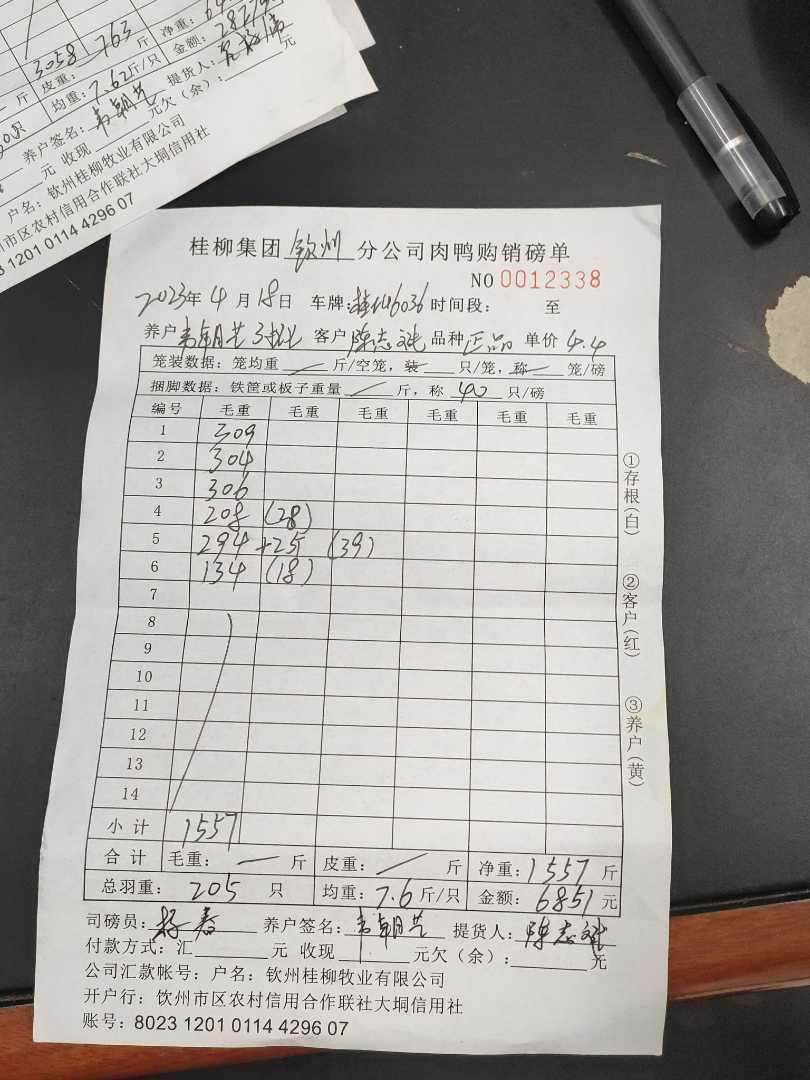 3058 763 斤
皮重:
净重:
金额:
斤 均重: 7.62 斤/只 提货人:
养户签名: 韦朝芑 元欠(余): 元
元 收现
户名: 钦州桂柳牧业有限公司
市区农村信用合作联社大垌信用社
8023 1201 0114 4296 07
桂柳集团 钦州 分公司肉鸭购销磅单
NO 0012338
2023年 4月 18日 车牌: 6036 时间段: 至
养户 韦朝芑 客户 陈志斌 品种 正品 单价 4.4
笼装数据: 笼均重 斤/空笼, 装 只/笼, 称 笼/磅
捆脚数据: 铁筐或板子重量 斤, 称 40 只/磅
编号 毛重 毛重 毛重 毛重 毛重 毛重
1 309
2 304
3 306
4 208 (28)
5 294 +25 (39)
6 134 (18)
7
8
9
10
11
12
13
14
小计 1557
合计 毛重: — 斤 皮重: 斤 净重: 1557 斤
总羽重: 205 只 均重: 7.6 斤/只 金额: 6851 元
司磅员: 杨春 养户签名: 韦朝芑 提货人: 陈志斌
付款方式: 汇 元 收现 元欠(余): 元
公司汇款帐号: 户名: 钦州桂柳牧业有限公司
开户行: 钦州市区农村信用合作联社大垌信用社
账号: 8023 1201 0114 4296 07
①存根(白)
②客户(红)
③养户(黄)